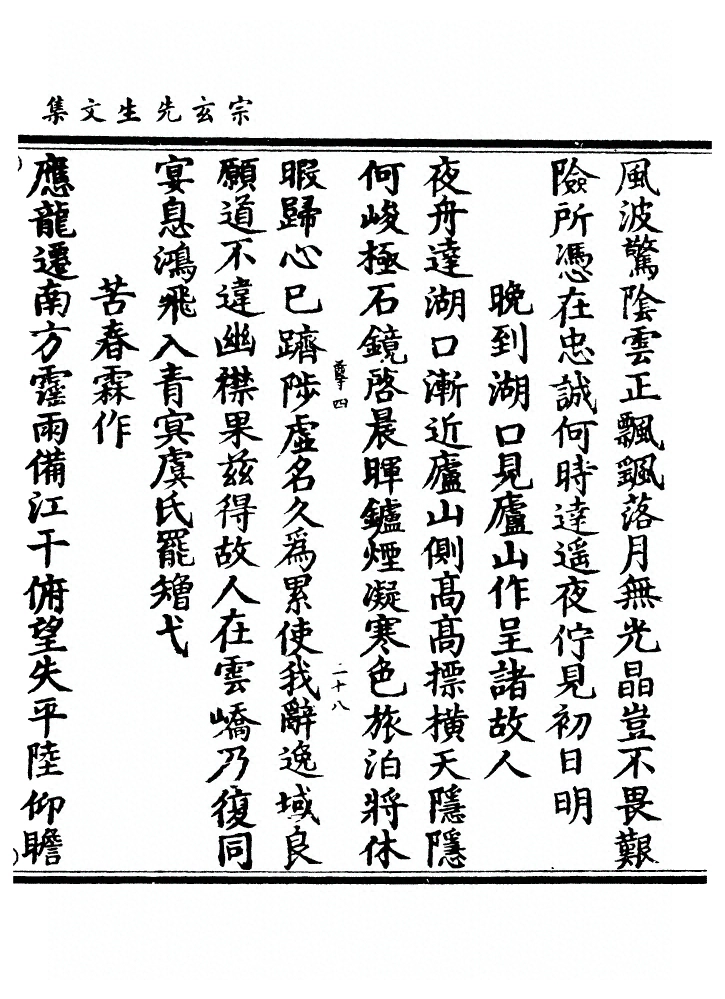 宗玄先生文集
風波驚隂雲正飄颻落月無光晶豈不畏艱
險所憑在忠誠何時達遥夜佇見初日明
晚到湖口見廬山作呈諸故人
夜舟達湖口漸近廬山側高高標橫天隱隱
何峻極石鏡啓晨暉鑪煙凝寒色旅泊將休
尊四 二十八
暇歸心已躋陟虛名久爲累使我辭逸域良
願道不違幽襟果兹得故人在雲嶠乃復同
宴息鴻飛入青冥虞氏罷矰弋
苦春霖作
應龍遷南方霪雨備江干俯望失平陸仰瞻